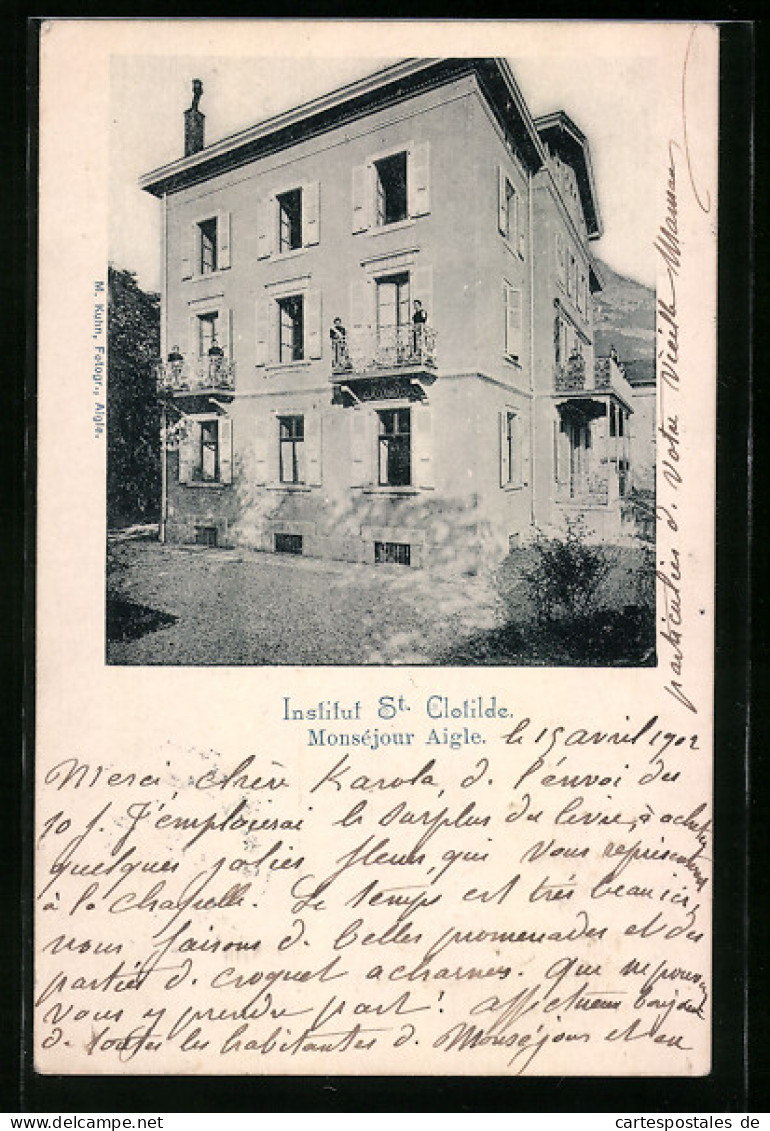 M. Kuhn, Fotogr., Aigle.
Institut St. Clotilde.
Monséjour Aigle.
le 15 avril 1902
Merci chère Karola, d. l'envoi du
10 f. J'emploierai le surplus du livre, à acheter
quelques jolies fleurs, qui vous représenteront
à la chapelle. Le temps est très beau ici,
nous faisons d. belles promenades et des
parties d. croquet acharnés. Que ne pouvez
vous y prendre part! Affectueux bonjour
d. toutes les habitantes d. Monséjour et en
particulier d. votre vieille Maman
cartespostales de
www.delcampe.net